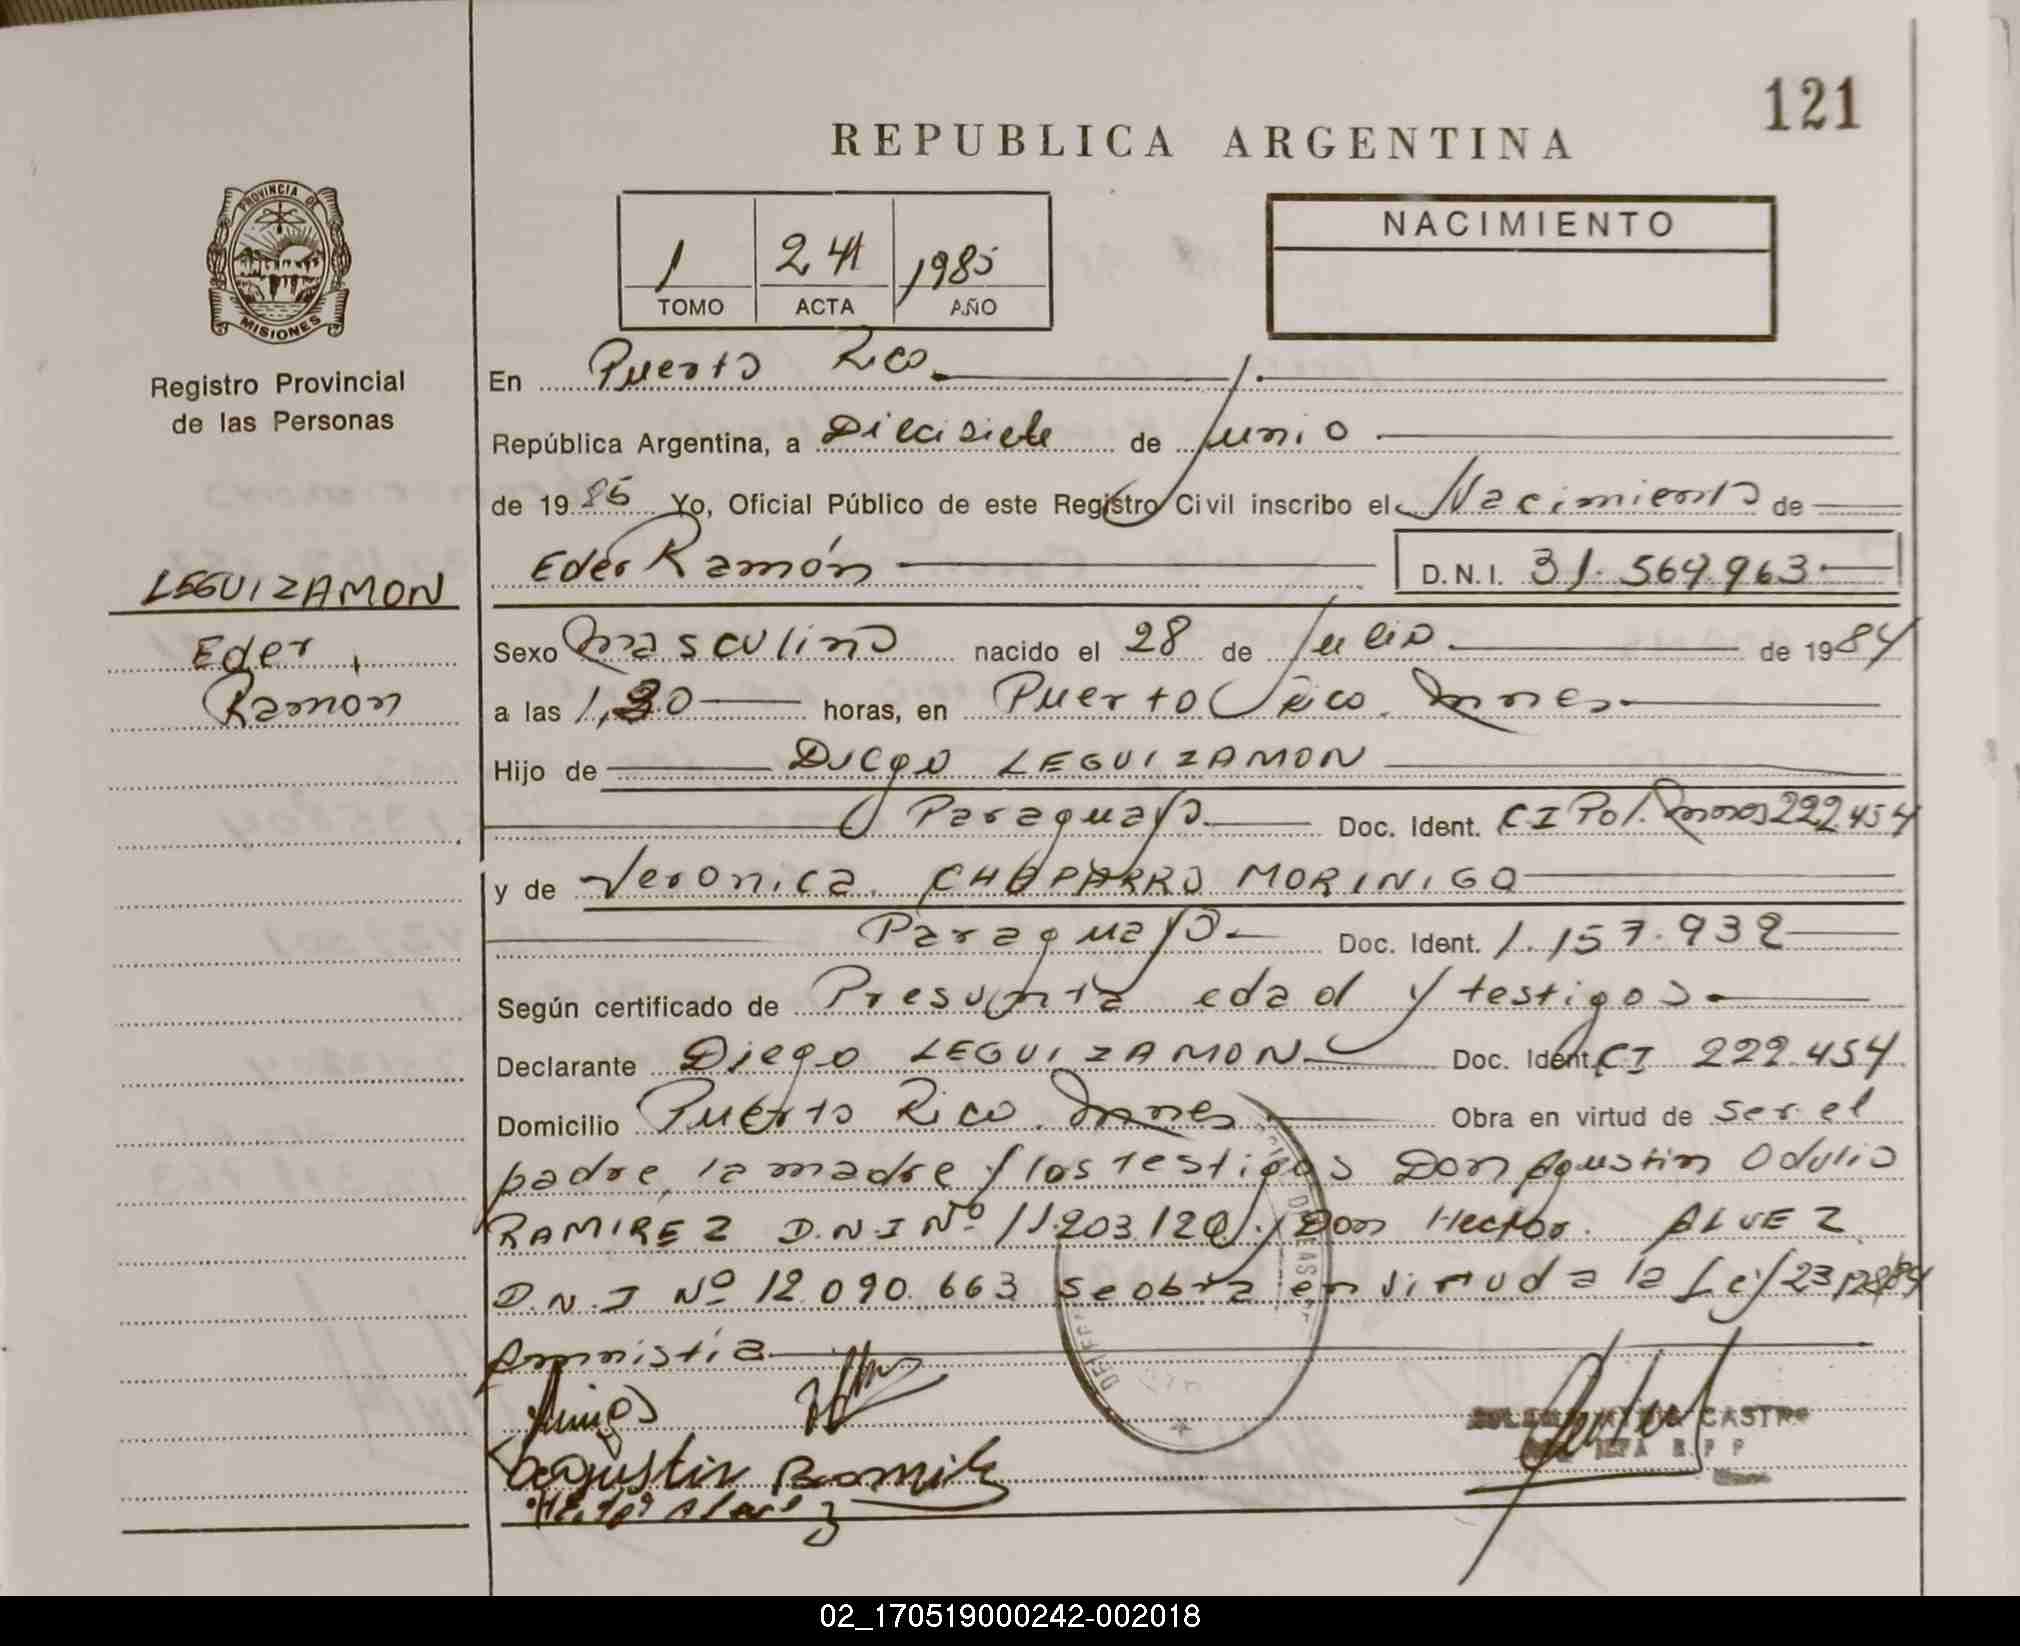 121
REPUBLICA ARGENTINA
PROVINCIA DE
MISIONES
Registro Provincial
de las Personas
1 241 1985
TOMO ACTA AÑO
NACIMIENTO
En Puerto Rico
República Argentina, a Diecisiete de Junio
de 1985 Yo, Oficial Público de este Registro Civil inscribo el Nacimiento de
Eder Ramón D.N.I. 31.564.963
LEGUIZAMON
Eder
Ramon
Sexo Masculino nacido el 28 de Julio de 1984
a las 1,30 horas, en Puerto Rico. Mnes
Hijo de Diego LEGUIZAMON
Paraguayo Doc. Ident. CI Pol. Mnes 222.454
y de Veronica CHAPARRO MORINIGO
Paraguayo Doc. Ident. 1.157.932
Según certificado de Presunta edad y testigos
Declarante Diego LEGUIZAMON Doc. Ident. CI 222.454
Domicilio Puerto Rico. Mnes Obra en virtud de ser el
padre, la madre y los testigos Don Agustin Odulio
RAMIREZ D.N.I Nº 11.203.120 y Don Hector ALVEZ
D.N.I Nº 12.090.663 se obra en virtud a la Ley
Amnistía
Agustin
CASTRO
02_170519000242-002018